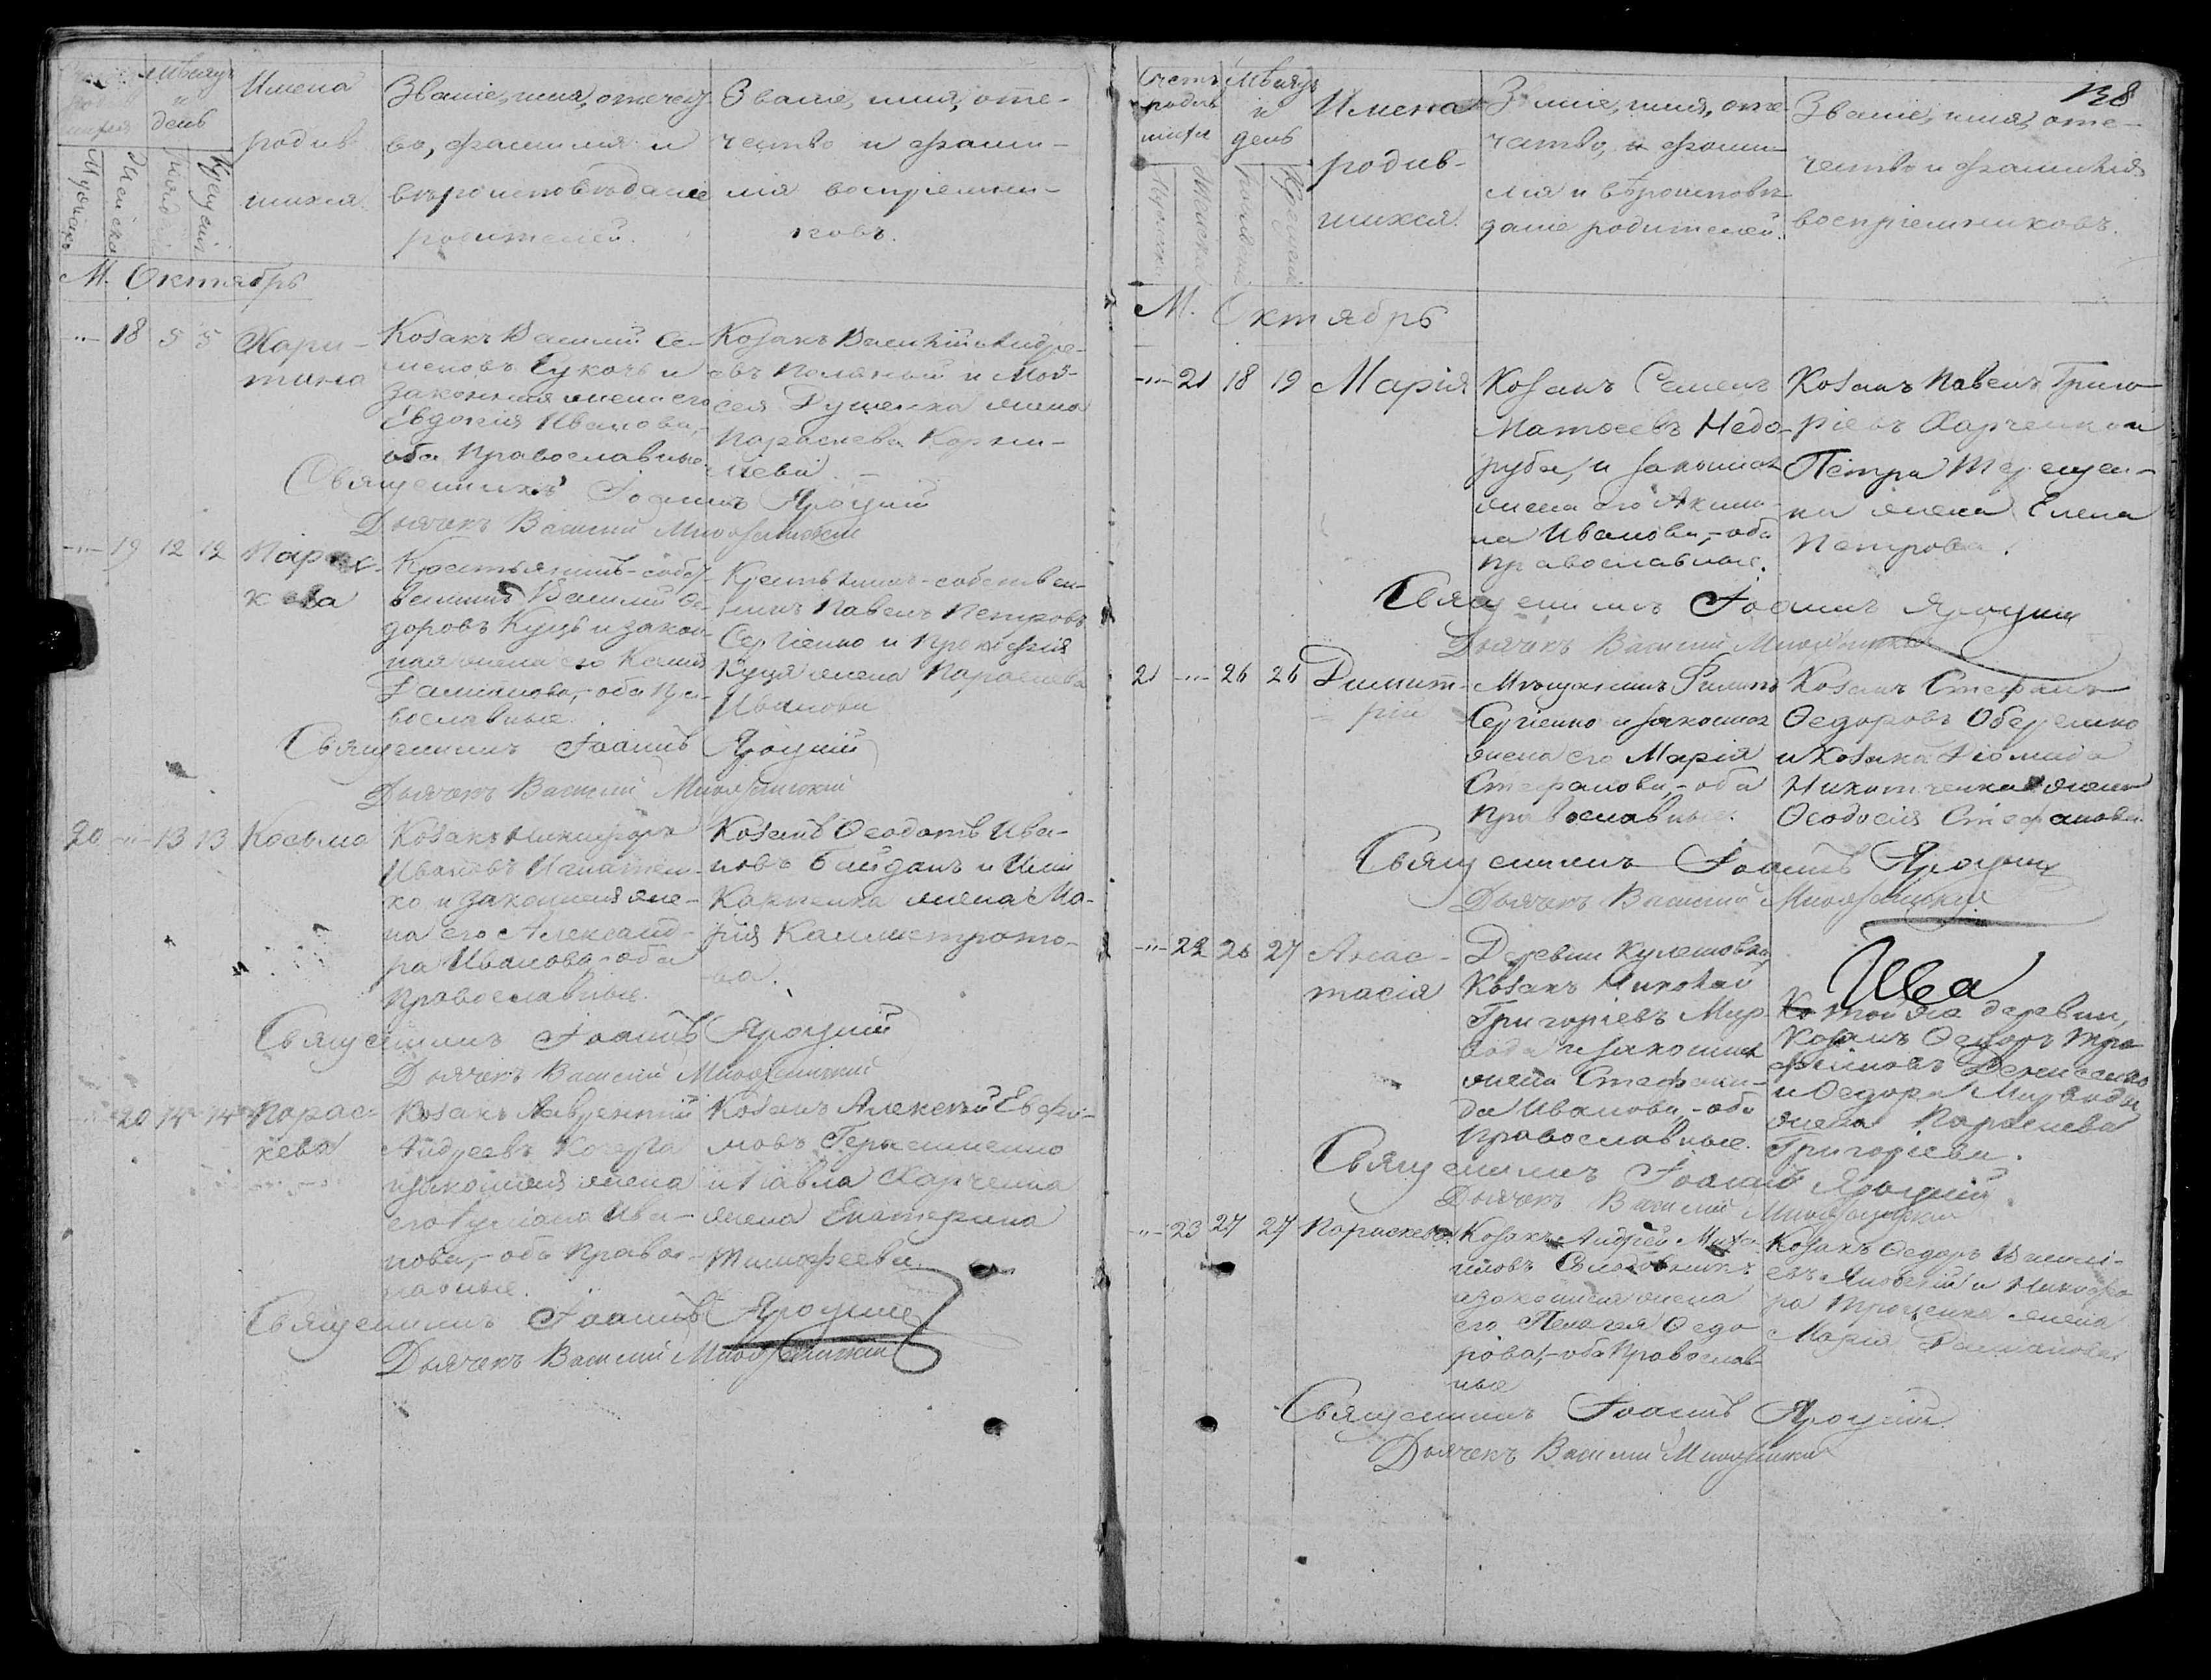 Мѣсяцъ
и
день
Имена
родив
шихся
Званіе, имя, отечест
во, фамилія и
вѣроисповѣданіе
родителей.
Званіе, имя, оте-
чество и фами-
лія воспріемни-
ковъ.
Мужска
Женска
Рожденія
Крещенія
М. Октябрь
-„- 18 5 5
Хари-
тина
Козакъ Василий Се-
меновъ и
законная жена его
Евдокія Иванова,-
оба Православные.
Козакъ Василий Андре-
евъ и Мой-
сея жена
Параскева Корни-
лieва. -
Священникъ Іоаннъ Яроцкій
Дьячекъ Василий
-„- 19 12 12
Парас-
кева
Крестьянинъ-собст-
венникъ Василий Ѳе-
доровъ Куць и закон-
ная жена его
оба Пра-
вославные.
Крестьянинъ-собствен-
никъ Павелъ Петровъ
Сергіенко и Прокофія
Куця жена Параскева
Иванова
Священникъ Іоаннъ Яроцкій
Дьячекъ Василий
20 -„- 13 13
Косьма
Козакъ Никифоръ
Ивановъ Игнатен-
ко и законная же-
на его Александ-
ра Иванова-оба
Православные.
Козакъ Ѳеодотъ Ива-
новъ Байданъ и Иліи
Карпенка жена Ма-
рія Каллистрато-
ва.
Священникъ Іоаннъ Яроцкій
Дьячекъ Василий
-„- 20 14 14
Парас-
кева
Козакъ Лаврентий
Андреевъ
и законная жена
его Іуліана Ива-
нова,-оба Правос-
лавные.
Козакъ Алексѣй Евфи-
мовъ Герасименко
и Павла Харченка
жена Екатерина
Тимофеева.
Священникъ Іоаннъ Яроцкій
Дьячекъ Василий
138
Счетъ
родив
шихся
Мѣсяцъ
и
день
Имена
родив-
шихся.
Званіе, имя, оте
чество, и фами-
лія и вѣроисповѣ
даніе родителей.
Званіе, имя, оте-
чество и фамилія
воспріемниковъ.
Мужска
Женска
Рожденія
Крещенія
М. Октябрь
-„- 21 18 19
Марія
Козакъ Семенъ
Матѳеевъ Недо-
руба, и законная
жена его Акили-
на Иванова,-оба
Православные.
Козакъ Павелъ Григо-
ріевъ Харченко и
Петра Терещен-
ка жена Елена
Петрова.
Священникъ Іоаннъ Яроцкій
Дьячекъ Василий
21 -„- 26 26
Димит-
рій
Мѣщанинъ Филипъ
Сергіенко и законная
жена его Марія
Стефанова,-оба
Православные.
Козакъ Стефанъ
Ѳедоровъ Оберемко
и Козака Діомида
Никитченка жена
Ѳеодосія Стефанова.
Священникъ Іоаннъ Яроцкій
Дьячекъ Василий
-„- 22 26 27
Анас-
тасія
Деревни Кулешовки
Козакъ Николай
Григоріевъ Мир-
вода и законная
жена Стефани-
да Иванова,-оба
Православные.
Ива
Той же деревни,
Козакъ Ѳедоръ Тро-
фимовъ Денисенко
и Ѳедора Мирводы
жена Параскева
Григоріева.
Священникъ Іоаннъ Яроцкій
Дьячекъ Василий
-„- 23 27 27
Параскева
Козакъ Андрей Миха-
иловъ
и законная жена
его Пелагея Ѳедо
рова,-оба Православ-
ные
Козакъ Ѳедоръ Василі-
евъ и Никифо
ра Троценка жена
Марія Даміанова.
Священникъ Іоаннъ Яроцкій.
Дьячекъ Василий